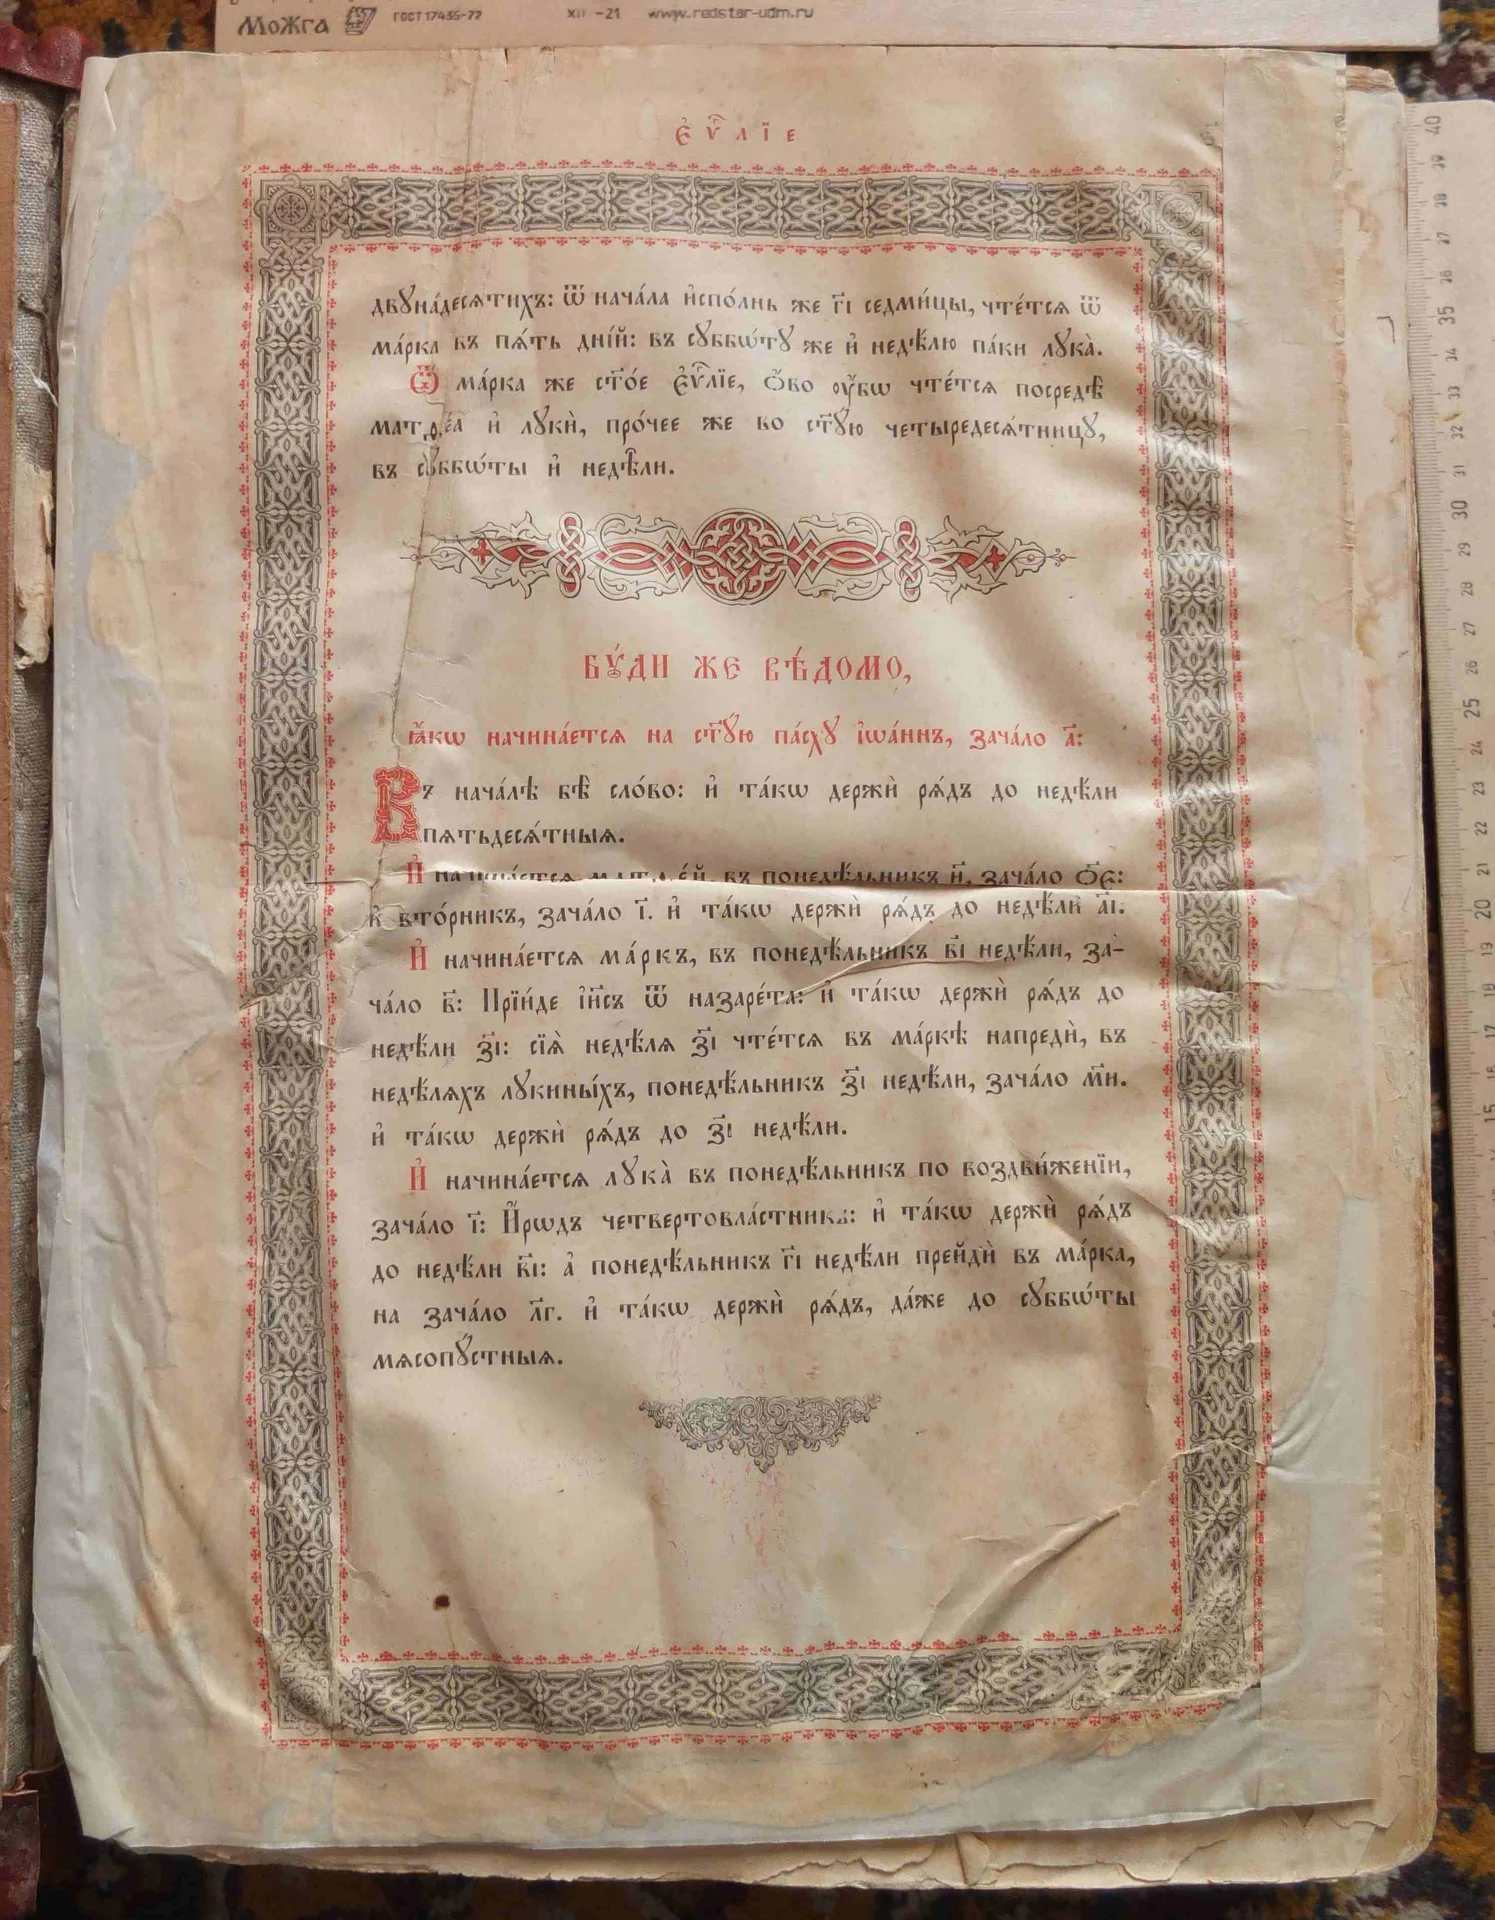 Можга ГОСТ 17435-72 XII -21 www.redstar-udm.ru
Є҆ѵⷢ҇лїе
двꙋна́десѧтихъ: ѿ нача́ла и҆спо́лнь же г҃і седми́цы, чте́тсѧ ѿ
ма́рка въ пѧ́ть дні́й: въ сꙋббѡ́тꙋ же и҆ недѣ́лю па́ки лꙋка̀.
Ѿ ма́рка же ст҃о́е є҆ѵⷢ҇лїе, ѻ҆́во ᲂу҆́бѡ чте́тсѧ посредѣ̀
матѳе́а и҆ лꙋкѝ, про́чее же во ст҃ꙋ́ю четыредесѧ́тницꙋ,
въ сꙋббѡ́ты и҆ недѣ̑ли.
БꙊ́ДИ ЖЕ ВѢ́ДОМО,
ꙗ҆́кѡ начина́етсѧ на ст҃ꙋ́ю па́схꙋ і҆ѡа́ннъ, зача́ло а҃:
Въ нача́лѣ бѣ̀ сло́во: и҆ та́кѡ держѝ рѧ́дъ до недѣ́ли
пѧтьдесѧ́тныѧ.
И҆ начина́етсѧ матѳе́й, въ понедѣ́льникъ н҃, зача́ло ѻ҃є:
и҆ вто́рникъ, зача́ло і҃. и҆ та́кѡ держѝ рѧ́дъ до недѣ́ли а҃і.
И҆ начина́етсѧ ма́ркъ, въ понедѣ́льникъ в҃і недѣ́ли, за-
ча́ло в҃: Прїи́де і҆и҃съ ѿ назаре́та: и҆ та́кѡ держѝ рѧ́дъ до
недѣ́ли з҃і: сїѧ̀ недѣ́лѧ з҃і чте́тсѧ въ ма́ркѣ напредѝ, въ
недѣ́лѧхъ лꙋкины́хъ, понедѣ́льникъ з҃і недѣ́ли, зача́ло м҃н.
и҆ та́кѡ держѝ рѧ́дъ до з҃і недѣ́ли.
И҆ начина́етсѧ лꙋка̀ въ понедѣ́льникъ по воздви́женїи,
зача́ло і҃: И҆́рѡдъ четвертовла́стникъ: и҆ та́кѡ держѝ рѧ́дъ
до недѣ́ли в҃і: а҆ понедѣ́льникъ г҃і недѣ́ли прейдѝ въ ма́рка,
на зача́ло л҃г. и҆ та́кѡ держѝ рѧ́дъ, да́же до сꙋббѡ́ты
мѧсопꙋ́стныѧ.